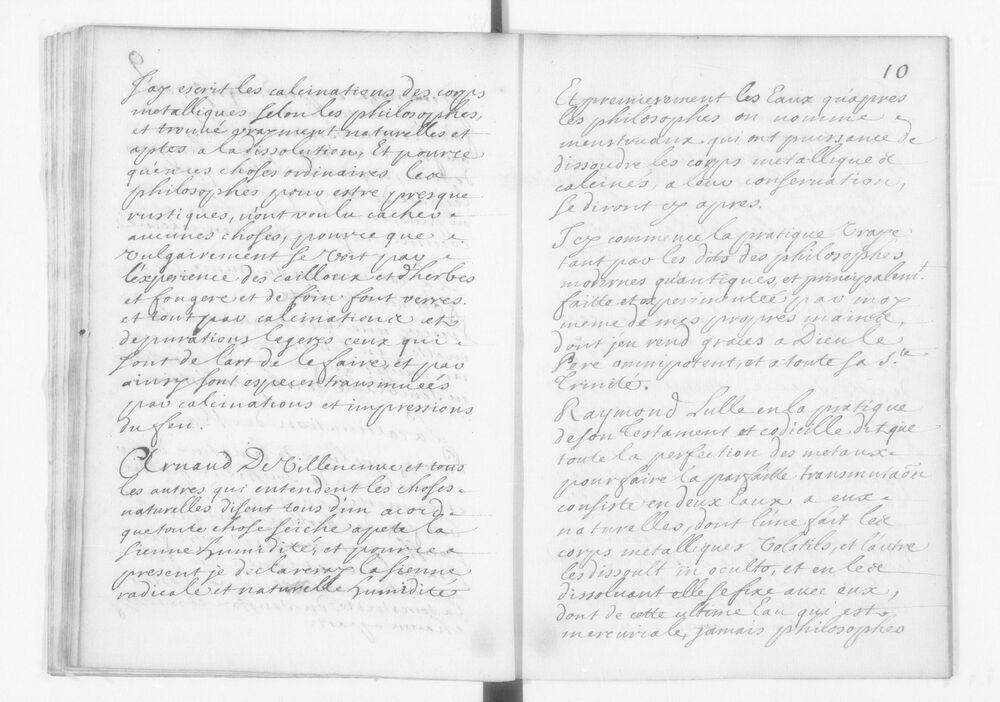 9
J'ay escrit les calcinations des corps
metalliques selon les philosophes,
et trouvé grapment naturelles et
aptes a la dissolution, Et pource
qu'en ces choses ordinaires les
philosophes pour estre presque
rustiques, n'ont voulu cacher
aucunes choses, pource que
vulgairement se voit par
l'experience des cailloux et d'herbes
et fougere et de foin font verres.
et tout par calcinations et
depurations legeres ceux qui
sont de l'art de le faire, et par
ainsy sont especes transmuées
par calcinations et impressions
du feu.
Arnaud De Villeneuve et tous
les autres qui entendent les choses
naturelles disent tous d'un acord
que toute chose seiche apete la
sienne humidité, et pource a
present je declareray la sienne
radicale et naturelle humidité
10
Et premierement les Eaux qu'apres
les philosophes on nomme
menstruaux qui ont puissance de
dissoudre les corps metalliques
calcinés, a leur conservation,
se diront cy apres.
Icy commence la pratique Vraye
tant par les dits des philosophes
modernes qu'antiques, et principalemt.
faitte et experimentée par moy
meme de mes propres mains,
dont j'en rend graces a Dieu le
Pere omnipotent, et a toute sa Ste
Trinité.
Raymond Lulle en la pratique
de son Testament et codicille dit que
toute la perfection des metaux
pour faire la parfaitte transmutaõn
consiste en deux Eaux a eux
naturelles, dont l'une fait les
corps metalliques Volatils, et l'autre
les dissoult in oculto, et en les
dissoluant elle se fixe avec eux,
dont de cette ultime Eau qui est
mercuriale, jamais philosophes